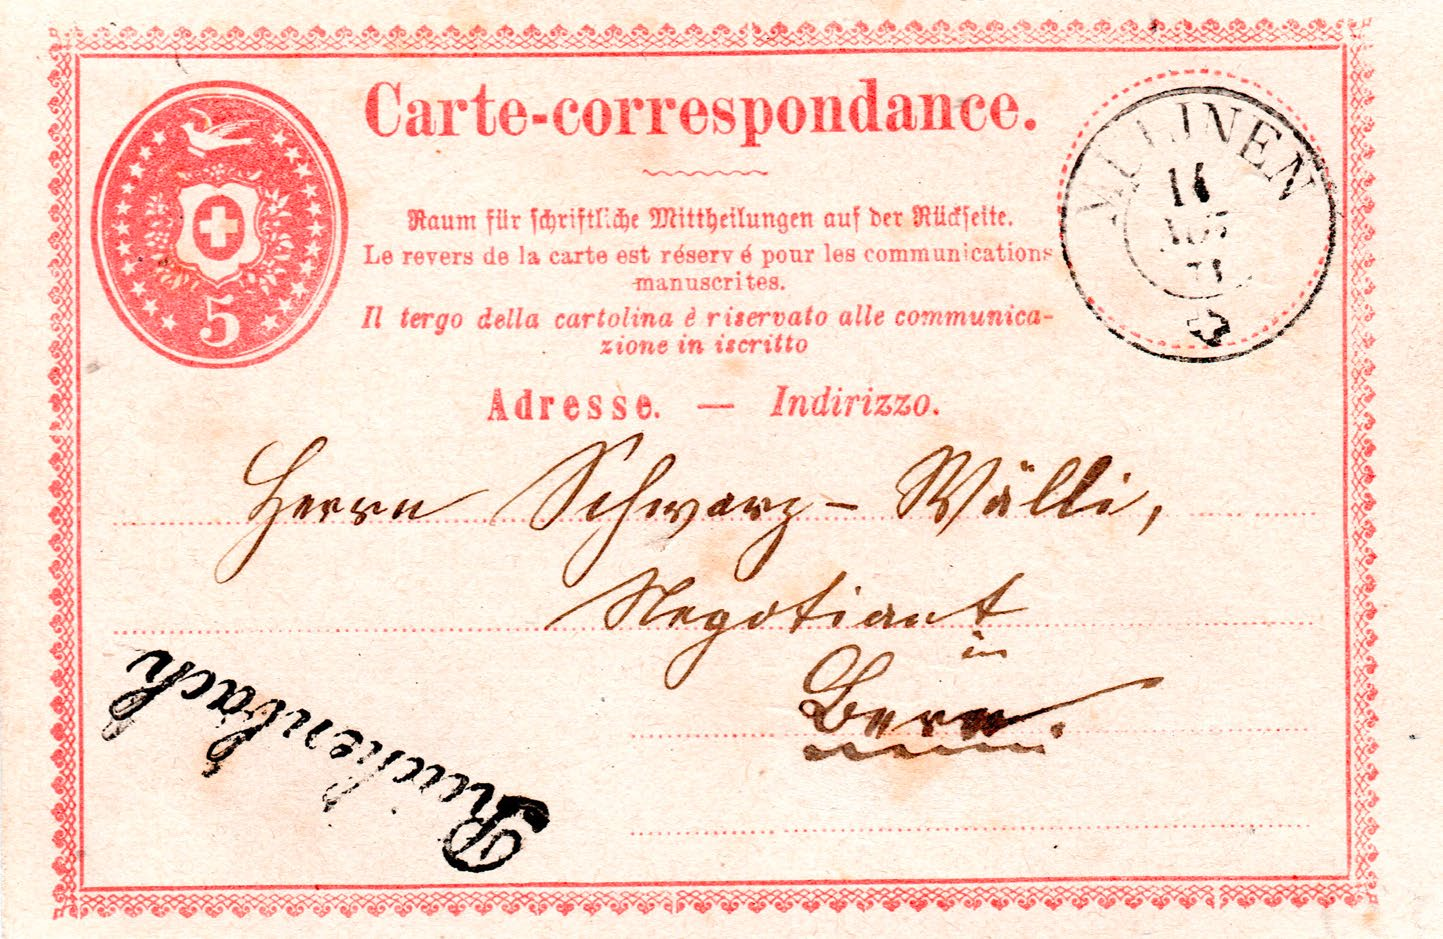 5
Carte-correspondance.
Raum für schriftliche Mittheilungen auf der Rückseite.
Le revers de la carte est réservé pour les communications
manuscrites.
Il tergo della cartolina è riservato alle communica-
zione in iscritto
MULINEN
Adresse. — Indirizzo.
Herrn Schwarz-Wälli,
Negotiant
in
Bern.
Reichenbach